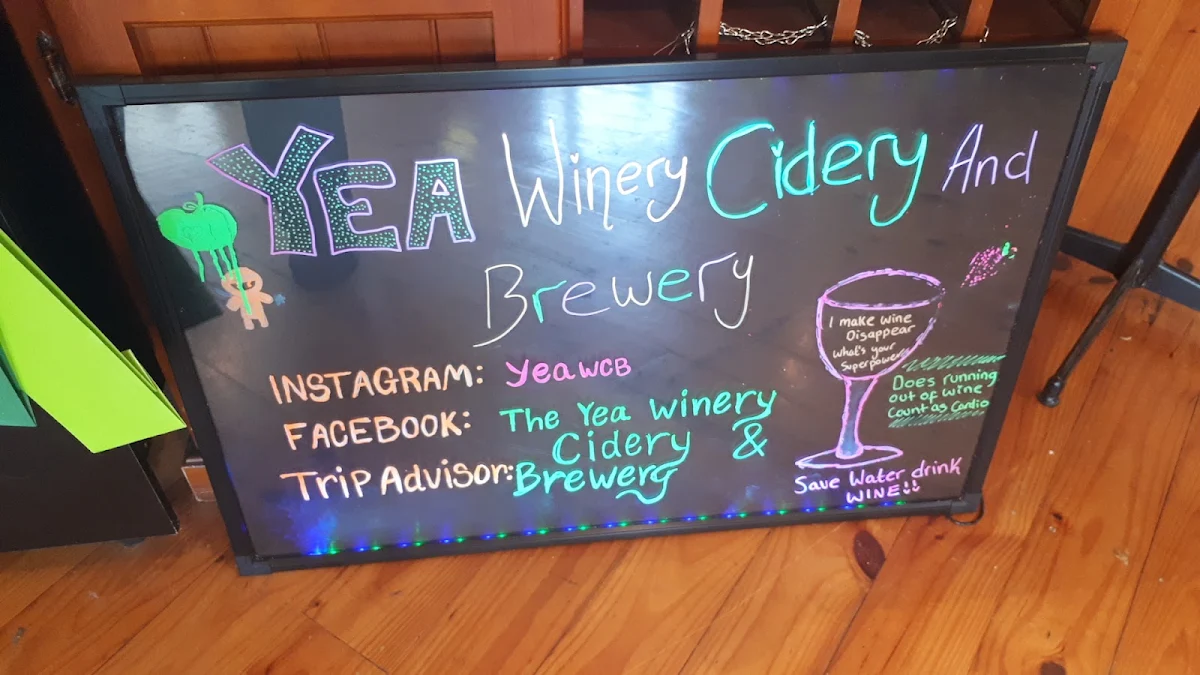 YEA Winery Cidery And
Brewery
INSTAGRAM: YeaWCB
FACEBOOK: The Yea winery
Cidery &
TripAdvisor: Brewery
I make wine
Disappear
What's your
Superpower
Does running
out of wine
Count as Cardio
Save Water drink
WINE!!